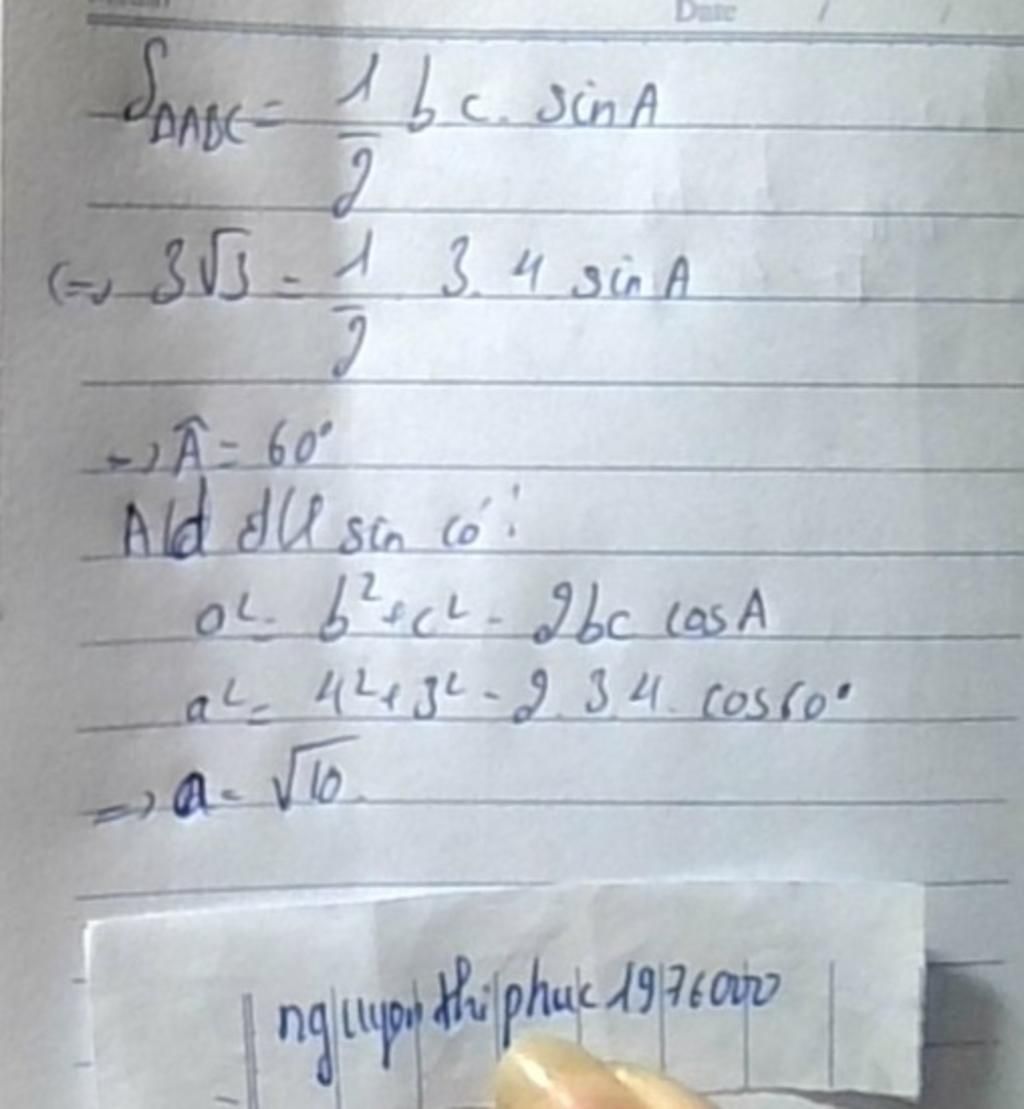 Date / /
S∆ABC = 1/2 bc. sinA
<=> 3√3 = 1/2 3. 4 sin A
=> Â = 60°
Ald đll sin có:
a² = b² + c² - 2bc cosA
a² = 4² + 3² - 2.3.4. cos60°
=> a = √10
nguyen thi phuc 1976000